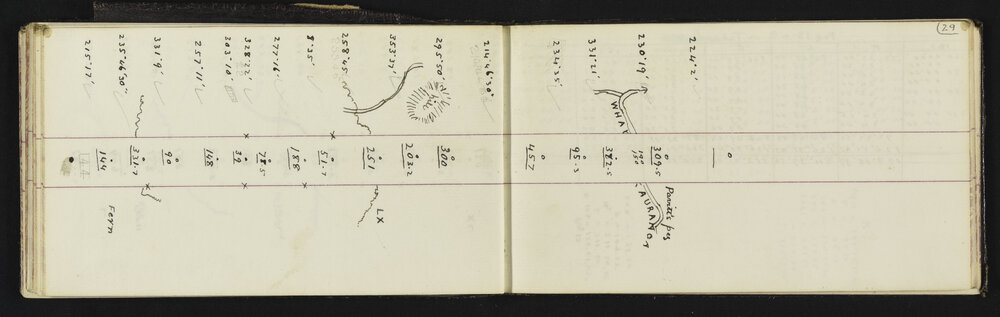 29
224°2'
230°19'
331°21'
234°35'
214°46'30"
295°50'
353°37'
258°45'
9°35'
277°16'
328°22'
203°10'
257°11'
331°9'
235°46'30"
215°17'
hill
WHAT
AURANGI
Panitis pos
LX
Fern
0
309.5
190
150
382.5
95.3
457
300
203.2
251
51.7
188
78.5
32
148
90
331.7
144